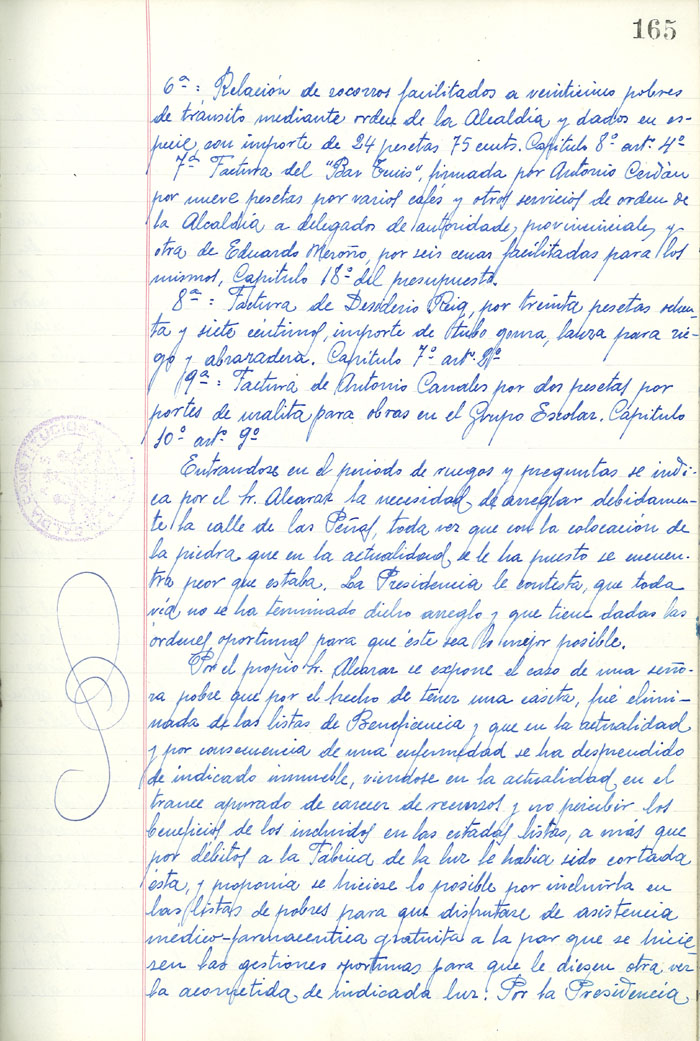 165
6ª: Relación de socorros facilitados a veinticinco pobres
de tránsito mediante orden de la Alcaldía y dados en es-
pecie, con importe de 24 pesetas 75 cents. Capítulo 8º artº 4º
7ª Factura del "Bar Tenis", firmada por Antonio Cerdán
por nueve pesetas por varios cafés y otros servicios de orden de
la Alcaldía a delegados de autoridades provinciales y
otra de Eduardo Meroño, por seis cenas facilitadas para los
mismos, Capítulo 18º del presupuesto.
8ª: Factura de Desiderio Reig, por treinta pesetas ochen-
ta y siete centimos, importe de tubo goma, lanza para rie-
go y abrazadera. Capítulo 7º artº 2º
9ª: Factura de Antonio Canales por dos pesetas por
portes de malita para obras en el Grupo Escolar. Capítulo
10º artº 9º
Entrandose en el periodo de ruegos y preguntas se indi-
ca por el Sr. Alcaraz la necesidad de arreglar debidamen-
te la calle de las Peñas, toda vez que con la colocación de
la piedra que en la actualidad se le ha puesto se encuen-
tra peor que estaba. La Presidencia le contesta, que toda
vía no se ha terminado dicho arreglo y que tiene dadas las
órdenes oportunas para que éste sea lo mejor posible.
Por el propio Sr. Alcaraz se expone el caso de una seño-
ra pobre que por el hecho de tener una casita, fué elimi-
nada de las listas de Beneficencia y que en la actualidad
y por consecuencia de una enfermedad se ha desprendido
de indicado inmueble, viendose en la actualidad en el
trance apurado de carecer de recursos y no percibir los
beneficios de los incluidos en las citadas listas, a más que
por débitos a la Fábrica de la luz le había sido cortada
ésta, y proponía se hiciese lo posible por incluirla en
las listas de pobres para que disfrutase de asistencia
médico-farmaceutica gratuita a la par que se hicie-
sen las gestiones oportunas para que le diesen otra vez
la acometida de indicada luz. Por la Presidencia